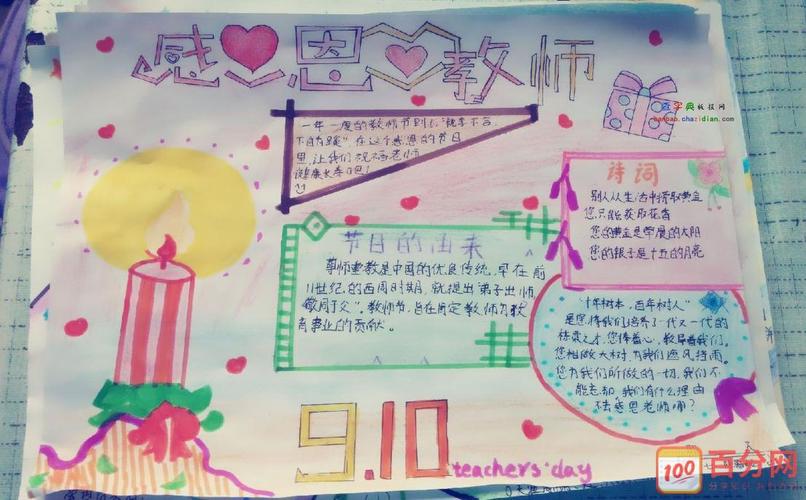 感恩教师
查字典数技网
shaobao.chazidian.com
一年一度的教师节到了,"桃李不言,
下自为蹊"在这个感恩的节日
里,让我们祝福老师
健康长寿吧!
诗词
别人从生活中捞取黄金
您只能获取花香
您的黄金是早晨的太阳
您的银子是十五的月亮
节日的由来
尊师重教是中国的优良传统,早在前
11世纪的西周时期,就提出"弟子出师
敬同于父"。教师节,旨在肯定教师为教
育事业上的贡献。
"十年树木,百年树人"
是您将我们培养了一代又一代的
栋梁之才,您倾尽心,教导着我们,
您相似大树,为我们遮风挡雨,
您为我们所做的一切,我们不
能忘却,我们有什么理由
不去感恩老师哪?
9.10
teachers'day
100
百分网